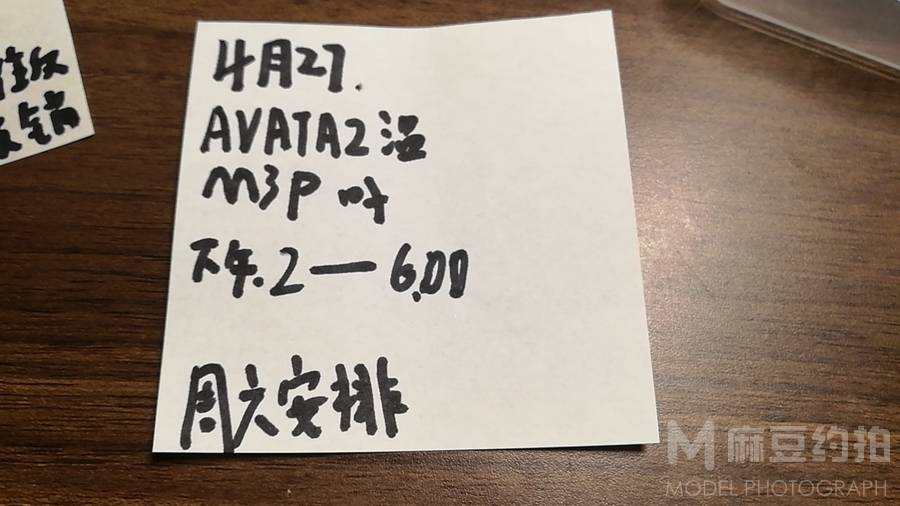 住饭
销
4月27.
AVATA2温
M3P 叶
下午.2—6.00
周六安排
M 麻豆约拍
MODEL PHOTOGRAPH